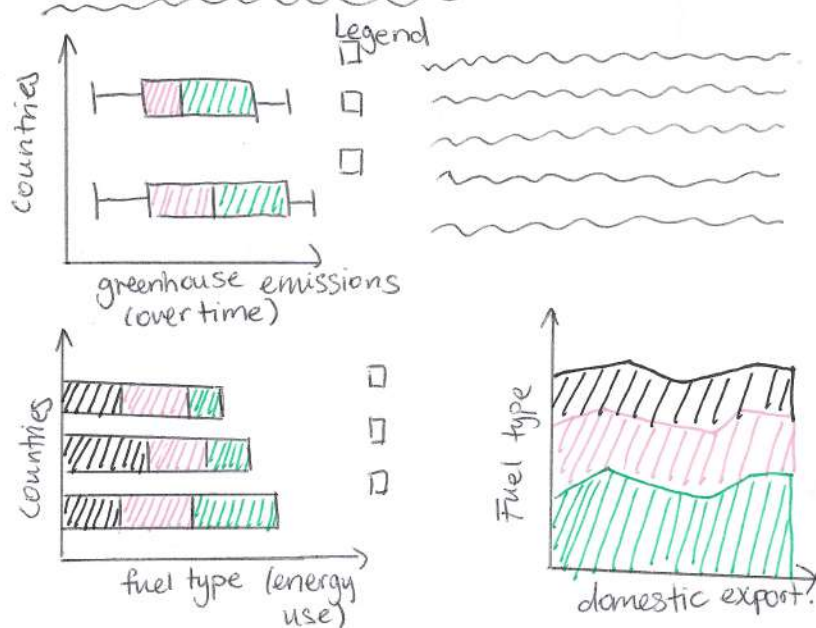 Legend
Countries
greenhouse emissions
(over time)
Countries
fuel type (energy
use)
Fuel type
domestic export?